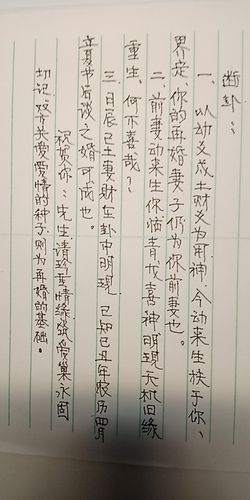 断卦：
一、以动爻戌土财爻为用神，今动来生扶于你、
界定、你的再婚妻子仍为你前妻也。
二、前妻动来生你怕青戌喜神明现天机旧缘
重生、何不喜哉？
三、日辰己土妻财在卦中明现、已知己丑年农历四月
立夏节后谈之婚可成也。
祝贺你：先生请珍重情缘筑爱巢永固
切记、双方关爱爱情的种子、则为再婚的基础。